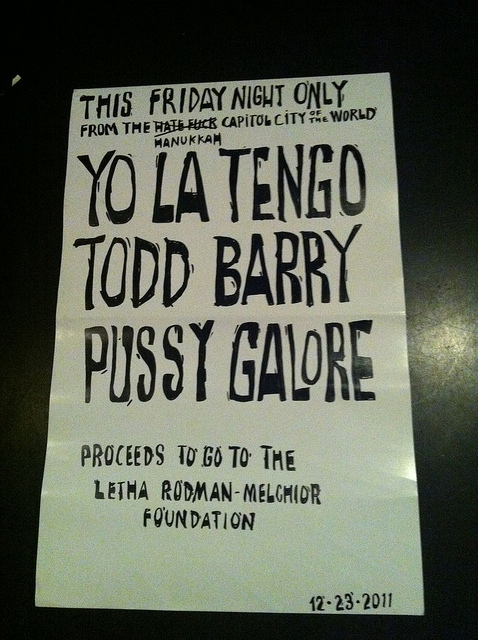 THIS FRIDAY NIGHT ONLY
FROM THE HATE FUCK CAPITOL CITY OF THE WORLD
HANUKKAH
YO LA TENGO
TODD BARRY
PUSSY GALORE
PROCEEDS TO GO TO THE
LETHA RODMAN-MELCHIOR
FOUNDATION
12-23-2011